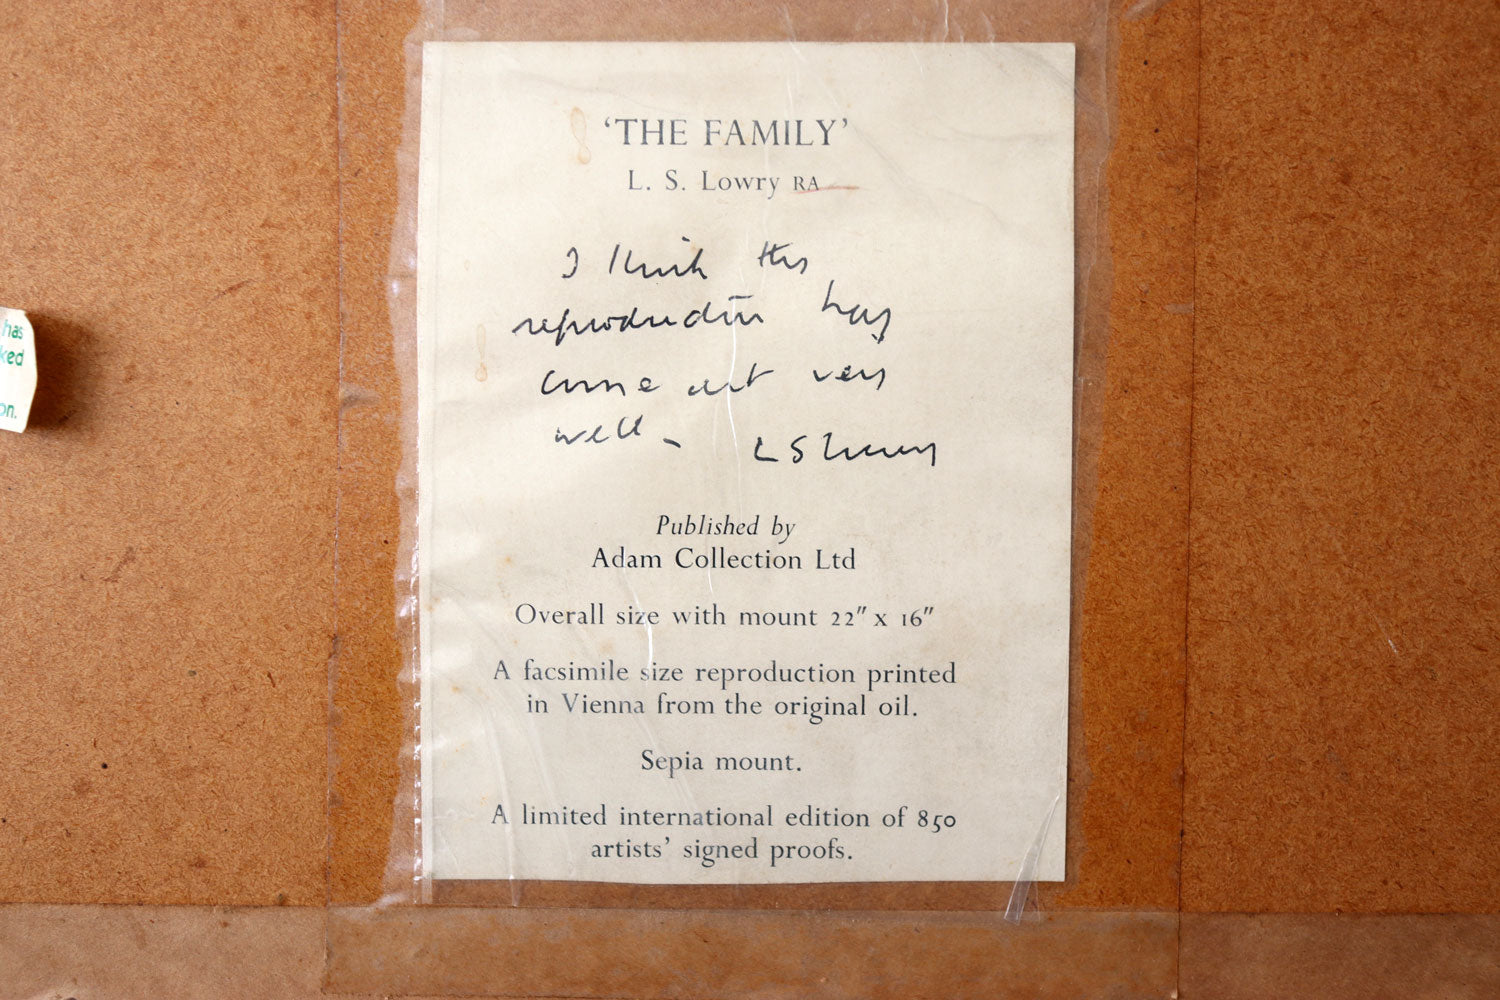 'THE FAMILY'
L. S. Lowry RA
I think this
reproduction has
come out very
well – L S Lowry
Published by
Adam Collection Ltd
Overall size with mount 22" x 16"
A facsimile size reproduction printed
in Vienna from the original oil.
Sepia mount.
A limited international edition of 850
artists' signed proofs.
has
ked
on.